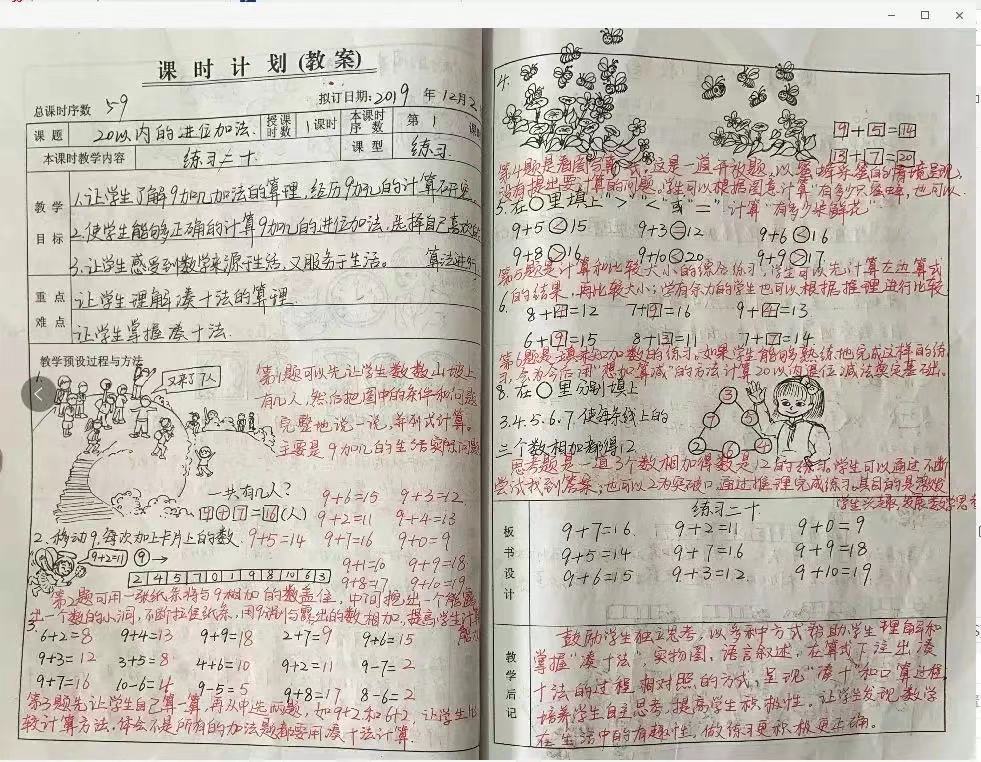 课时计划(教案)
总课时序数 59 拟订日期:2019 年12月2
课题 20以内的进位加法. 授课时数 1课时 本课时序数 第 1 课时
本课时教学内容 练习二十. 课型 练习.
教学目标
1.让学生了解9加几加法的算理,经历9加几的计算
2.使学生能够正确的计算9加几的进位加法,选择自己喜欢的
3.让学生感受到数学来源于生活,又服务于生活。 算法进行
重点 让学生理解凑十法的算理.
难点 让学生掌握凑十法.
教学预设过程与方法
1.
又来了7人
第1题可以先让学生数数山坡上
有几人,然后把图中的条件和问题
完整地说一说,并列式计算。
主要是9加几的生活实际问题
一共有几人?
9+7=16(人)
9+6=15 9+3=12
9+2=11 9+4=13
2.移动9,每次加卡片上的数. 9+5=14 9+7=16 9+0=9
9+2=11 9 →
9+1=10 9+9=18
2 4 5 7 0 1 9 8 10 6 3
9+8=17 9+10=19
第2题可用一张纸条将与9相加的数盖住,中间挖出一个能露
出一个数的小洞,不断拉住纸条,用9依次与露出的数相加,提高学生计算
能力
3.
6+2=8 9+4=13 9+9=18 2+7=9 9+6=15
9+3=12 3+5=8 4+6=10 9+2=11 9-7=2
9+7=16 10-6= 9-5=5 9+8=17 8-6=2
第3题先让学生自己算一算,再从中选两题,如9+2和6+2,让学生比
较计算方法,体会不是所有的加法题都要用凑十法计算.
4.
9+5=14
13+7=20
第4题是看图写算式,这是一道开放题,以蜜蜂采蜜的情境呈现,
没有提出要计算的问题,学生可以根据图意计算"有多少只蜜蜂,也可以
5.在○里填上">""<"或"=" 计算"有多少朵鲜花"
9+5<15 9+3=12 9+6<16
9+8>16 9+10<20 9+9>17
第5题是计算和比较大小的综合练习,学生可以先计算左边算式
的结果,再比较大小;学有余力的学生也可以根据推理进行比较
6.
8+ =12 7+9=16 9+4=13
6+9=15 8+3=11 7+7=14
第6题是填未知加数的练习,如果学生能够熟练地完成这样的练
习,会为今后用"想加算减"的方法计算20以内退位减法奠定基础.
8.在○里分别填上
3.4.5.6.7.使每条线上的
三个数相加都得12
3
7 5
2 6 4
思考题是一道3个数相加得数是12的练习,学生可以通过不断
尝试找到答案;也可以2为突破口,通过推理完成练习,其目的是激发
学生兴趣,发展数学思考
板书设计
练习二十.
9+7=16. 9+2=11 9+0=9
9+5=14 9+7=16 9+9=18
9+6=15 9+3=12 9+10=19
教学后记
鼓励学生独立思考,以多种方式帮助学生理解和
掌握"凑十法"实物图,语言叙述,在算式下注出凑
十法的过程相对照的方式,呈现"凑十"和口算过程,
培养学生自主思考,提高学生积极性.让学生发现数学
在生活中的有趣性,做练习更积极更正确.